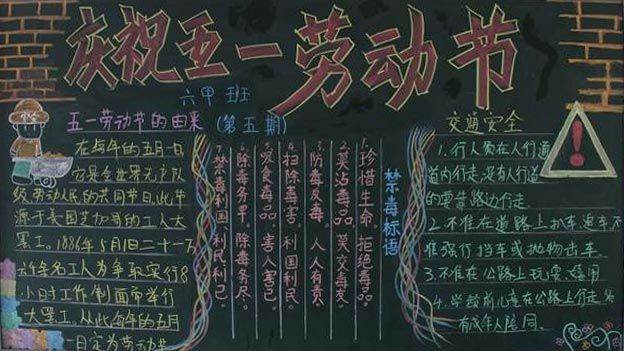 庆祝五一劳动节
六甲班
(第五期)
五一劳动节的由来
在每年的五月一
它是全世界无产
级、劳动人民的共同节日。此节
源于美国芝加哥的工人大
罢工。1886年5月1日二十一万
六千余名工人为争取实行8
小时工作制而举行
大罢工。从此每年的五月
一日定为劳动节
禁毒标语
1.珍惜生命。拒绝毒品。
2.莫沾毒品。莫交毒友。
3.防毒反毒。人人有责。
4.扫除毒害。利国利民。
5.吸食毒品。害人害己。
6.除毒务早，除毒务尽。
7.禁毒利国、利民、利己。
交通安全
1.行人需在人行道
道内行走,没有人行道
的要靠路边行走。
2.不准在道路上扒车、追车、不
准强行挡车或抛物击车。
3.不准在公路上玩耍、嬉闹
4.学龄前儿童在公路上行走
有成年人陪同。